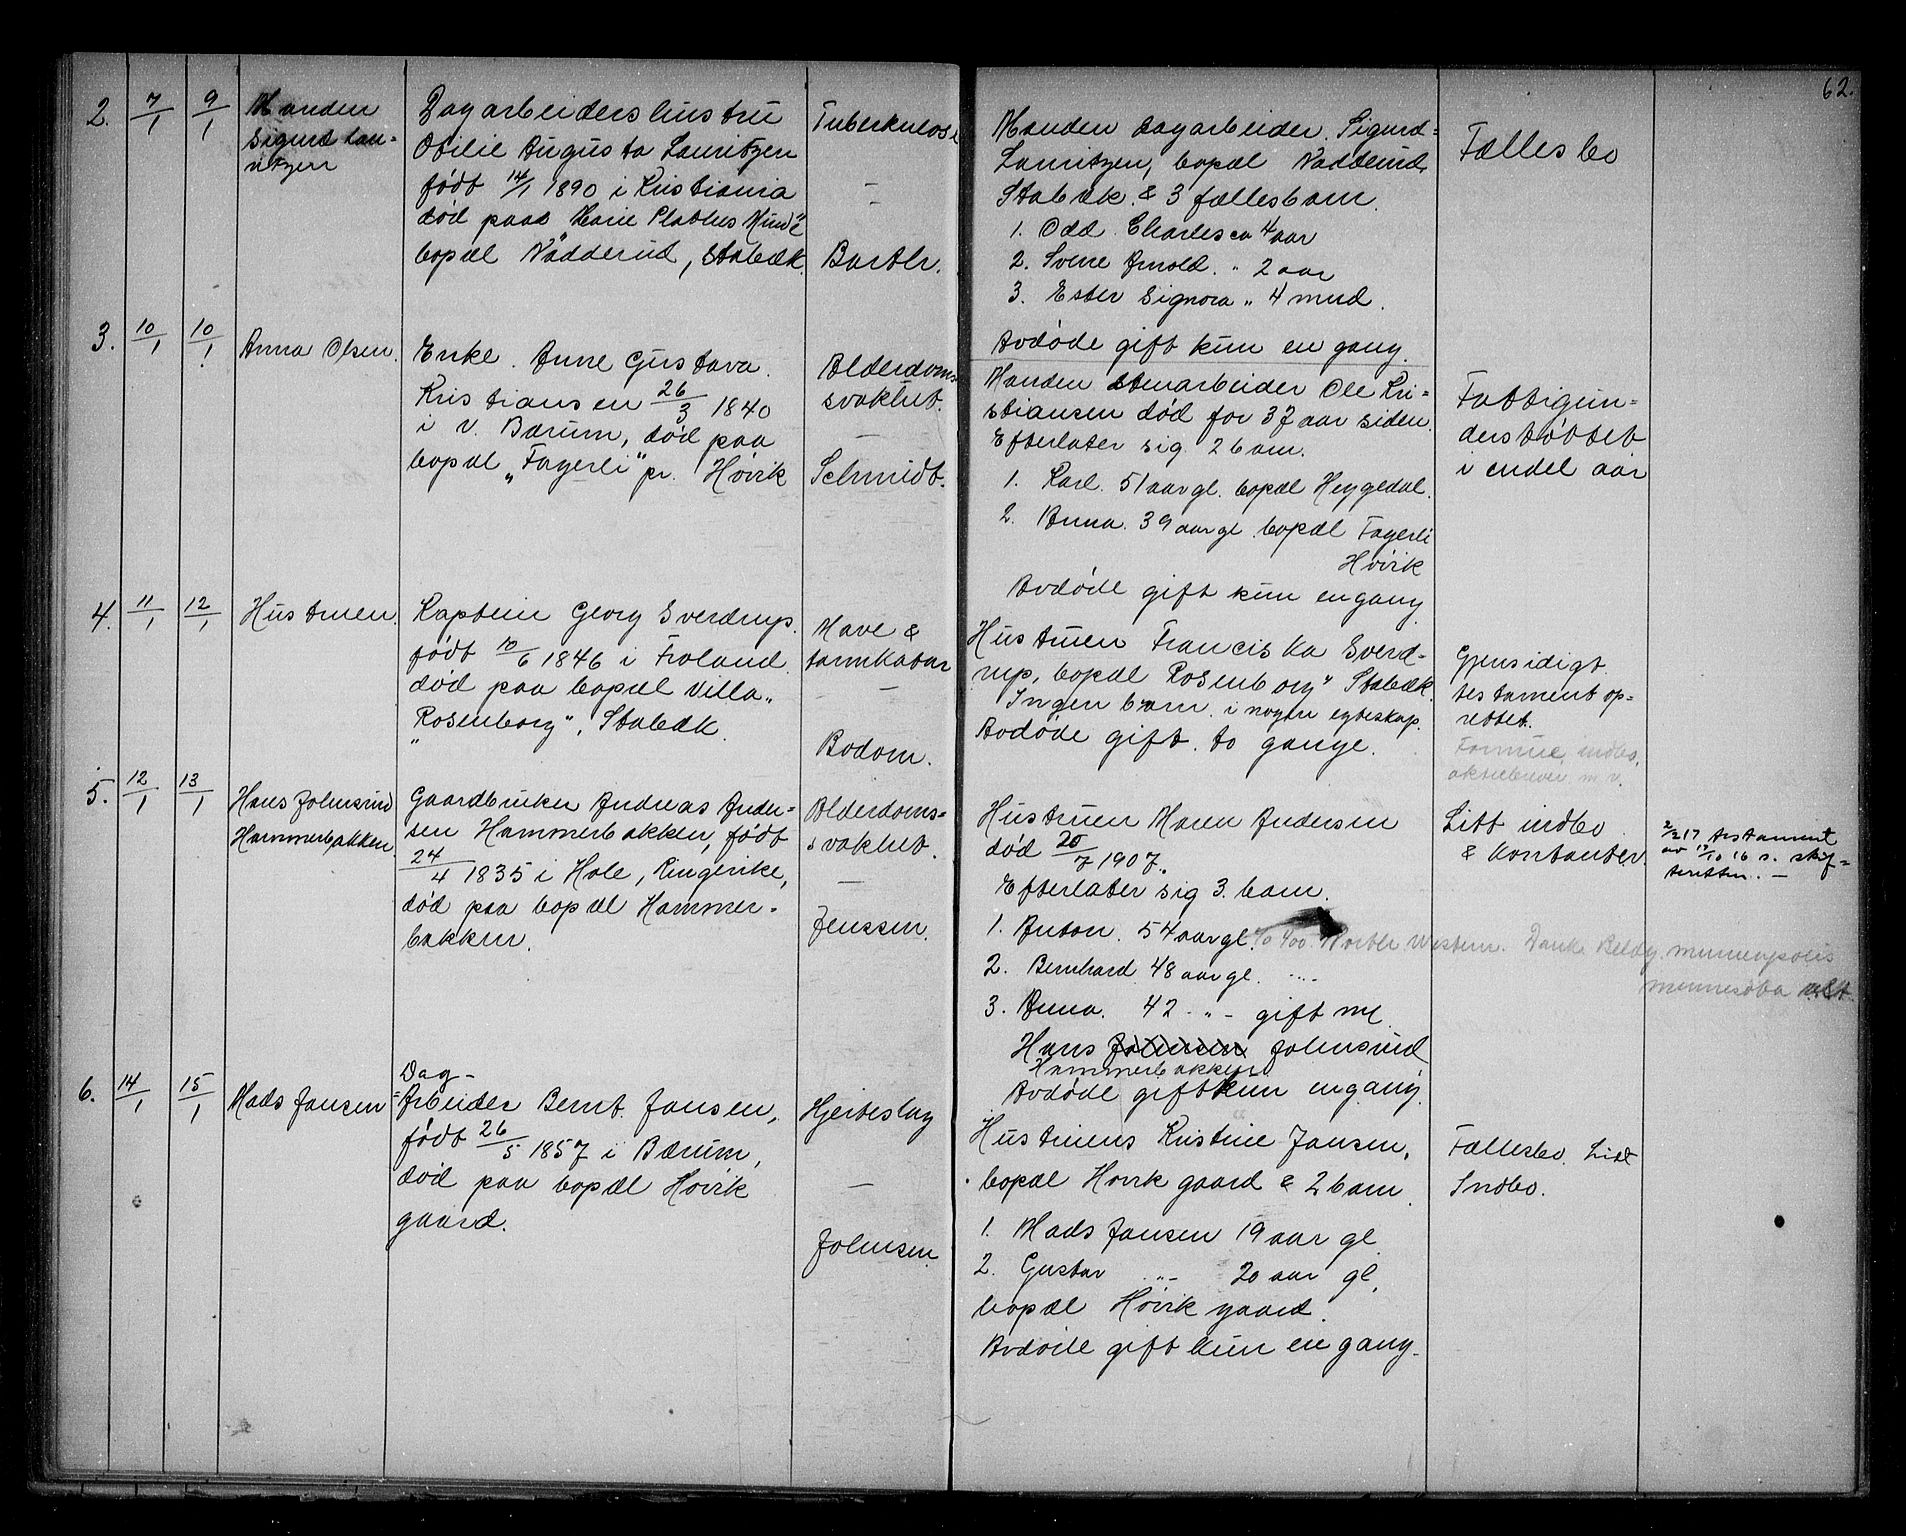 62.
2. 7/1 9/1 Manden
Sigurd Lau-
ritzen
Dagarbeidershustru
Otilie Augusta Lauritzen
født 14/1 1890 i Kristiania
død paa Marie Plathes Minde
bopæl Nadderud, Stabæk.
Tuberkulose
—
—
Barth.
Manden dagarbeider Sigurd
Lauritzen, bopæl Nadderud,
Stabæk. & 3 fællesbarn.
1. Odd Charles ca 4 aar
2. Sverre Arnold. " 2 aar
3. Ester Signora " 4 mnd.
Avdøde gift kun en gang.
Fællesbo
3. 10/1 10/1 Anna Olsen.
Enke Anne Gustava
Kristiansen 26/3 1840
i V. Bærum, død paa
bopæl „Fagerli" pr. Høvik
Alderdoms-
svakhet.
—
Schmidt.
Manden stenarbeider Ole Kri-
stiansen død for 37 aar siden.
Efterlater sig 2 barn.
1. Karl. 51 aar gl. bopæl Heggedal.
2. Anna. 39 aar gl. bopæl Fagerli
Høvik
Avdøde gift kun en gang.
Fattigun-
derstøttet
i endel aar
4. 11/1 12/1 Hustruen.
Kaptein Georg Sverdrup.
født 10/6 1846 i Froland
død paa bopæl Villa
„Rosenborg", Stabæk.
Mave &
tarmkatar
—
Bodom.
Hustruen Franciska Sverd-
rup, bopæl Rosenborg" Stabæk.
Ingen barn i nogen egteskap.
Avdøde gift to gange.
Gjensidigt
testament op-
rettet.
Formue, indbo,
aktiebrever m.v.
5. 12/1 13/1 Hans Johnsrud
Hammerbakken
Gaardbruker Andreas Ander-
sen Hammerbakken, født
24/4 1835 i Hole, Ringerike,
død paa bopæl Hammer-
bakken.
Alderdoms-
svakhet.
—
Jenssen.
Hustruen Maren Andersen
død 25/7 1907.
Efterlater sig 3 barn.
1. Anton. 54 aar gl. % 400 North Western. Bank Beldg. minneapolis
minnesota
2. Bernhard 48 aar gl. " -
3. Anna. 42 - " - gift m/
Hans Johnsrud
Hammerbakken
Avdøde gift kun en gang.
Litt indbo
& kontanter.
2/2 17 testament
av 17/10 16 s. skif-
teretten. —
6. 14/1 15/1 Mads Jansen
Dag-
Arbeider Bernt Jansen,
født 26/5 1857 i Bærum,
død paa bopæl Høvik
gaard.
Hjerteslag
—
Johnsen.
Hustruens Kristine Jansen,
bopæl Høvik gaard & 2 barn
1. Mads Jansen 19 aar gl.
2. Gustav " - 20 aar gl.
bopæl Høvik gaard.
Avdøde gift kun en gang.
Fællesbo. Lidt
Indbo.